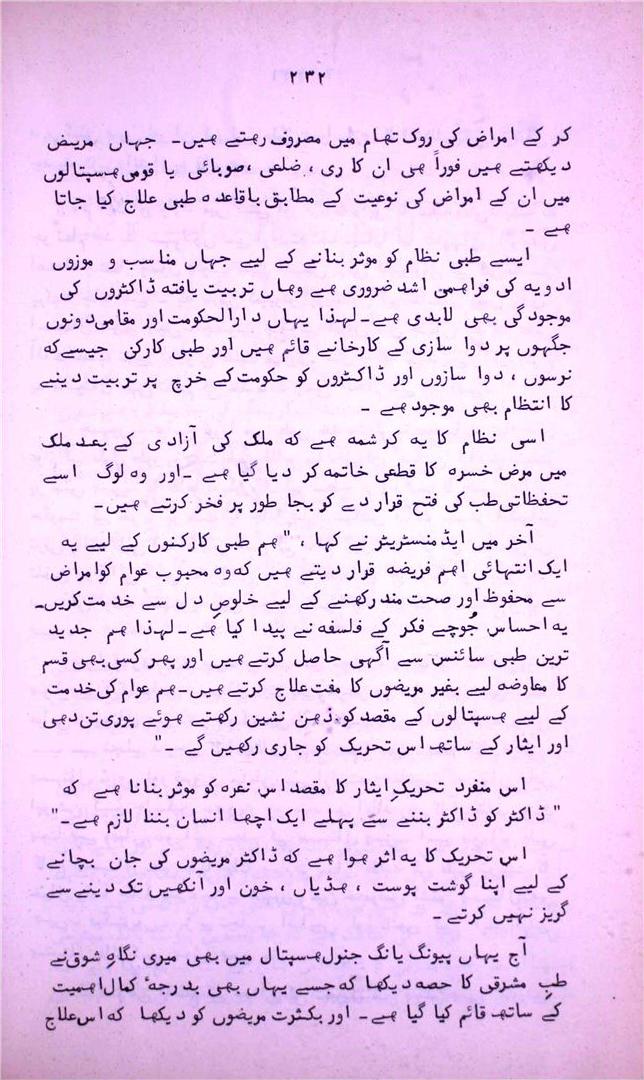 ۲۳۲
کر کے امراض کی روک تھام میں مصروف رھتے ھیں۔ جہاں مریض
دیکھتے ھیں فوراً ھی ان کاری، ضلعی، صوبائی یا قومی ھسپتالوں
میں ان کے امراض کی نوعیت کے مطابق باقاعدہ طبی علاج کیا جاتا
ھے ۔
ایسے طبی نظام کو موثر بنانے کے لیے جہاں مناسب و موزوں
ادویہ کی فراھمی اشد ضروری ھے وھاں تربیت یافتہ ڈاکٹروں کی
موجودگی بھی لابدی ھے۔ لہذا یہاں دارالحکومت اور مقامی دونوں
جگہوں پر دوا سازی کے کارخانے قائم ھیں اور طبی کارکن جیسے کہ
نرسوں، دوا سازوں اور ڈاکٹروں کو حکومت کے خرچ پر تربیت دینے
کا انتظام بھی موجود ھے ۔
اسی نظام کا یہ کرشمہ ھے کہ ملک کی آزادی کے بعد ملک
میں مرض خسرہ کا قطعی خاتمہ کر دیا گیا ھے ۔اور وہ لوگ اسے
تحفظاتی طب کی فتح قرار دے کر بجا طور پر فخر کرتے ھیں۔
آخر میں ایڈمنسٹریٹر نے کہا، "ھم طبی کارکنوں کے لیے یہ
ایک انتہائی اھم فریضہ قرار دیتے ھیں کہ وہ محبوب عوام کو امراض
سے محفوظ اور صحت مند رکھنے کے لیے خلوصِ دل سے خدمت کریں۔
یہ احساس جُوچے فکر کے فلسفہ نے پیدا کیا ھے۔ لہذا ھم جدید
ترین طبی سائنس سے آگہی حاصل کرتے ھیں اور پھر کسی بھی قسم
کا معاوضہ لیے بغیر مریضوں کا مفت علاج کرتے ھیں۔ ھم عوام کی خدمت
کے لیے ھسپتالوں کے مقصد کو ذھن نشین رکھتے ھوئے پوری تن دھی
اور ایثار کے ساتھ اس تحریک کو جاری رکھیں گے ۔"
اس منفرد تحریکِ ایثار کا مقصد اس نعرہ کو موثر بنانا ھے کہ
"ڈاکٹر کو ڈاکٹر بننے سے پہلے ایک اچھا انسان بننا لازم ھے۔"
اس تحریک کا یہ اثر ھوا ھے کہ ڈاکٹر مریضوں کی جان بچانے
کے لیے اپنا گوشت پوست، ھڈیاں، خون اور آنکھیں تک دینے سے
گریز نہیں کرتے ۔
آج یہاں پیونگ یانگ جنرل ھسپتال میں بھی میری نگاہِ شوق نے
طبِ مشرقی کا حصہ دیکھا کہ جسے یہاں بھی بدرجۂ کمال اھمیت
کے ساتھ قائم کیا گیا ھے۔ اور بکثرت مریضوں کو دیکھا کہ اس علاج